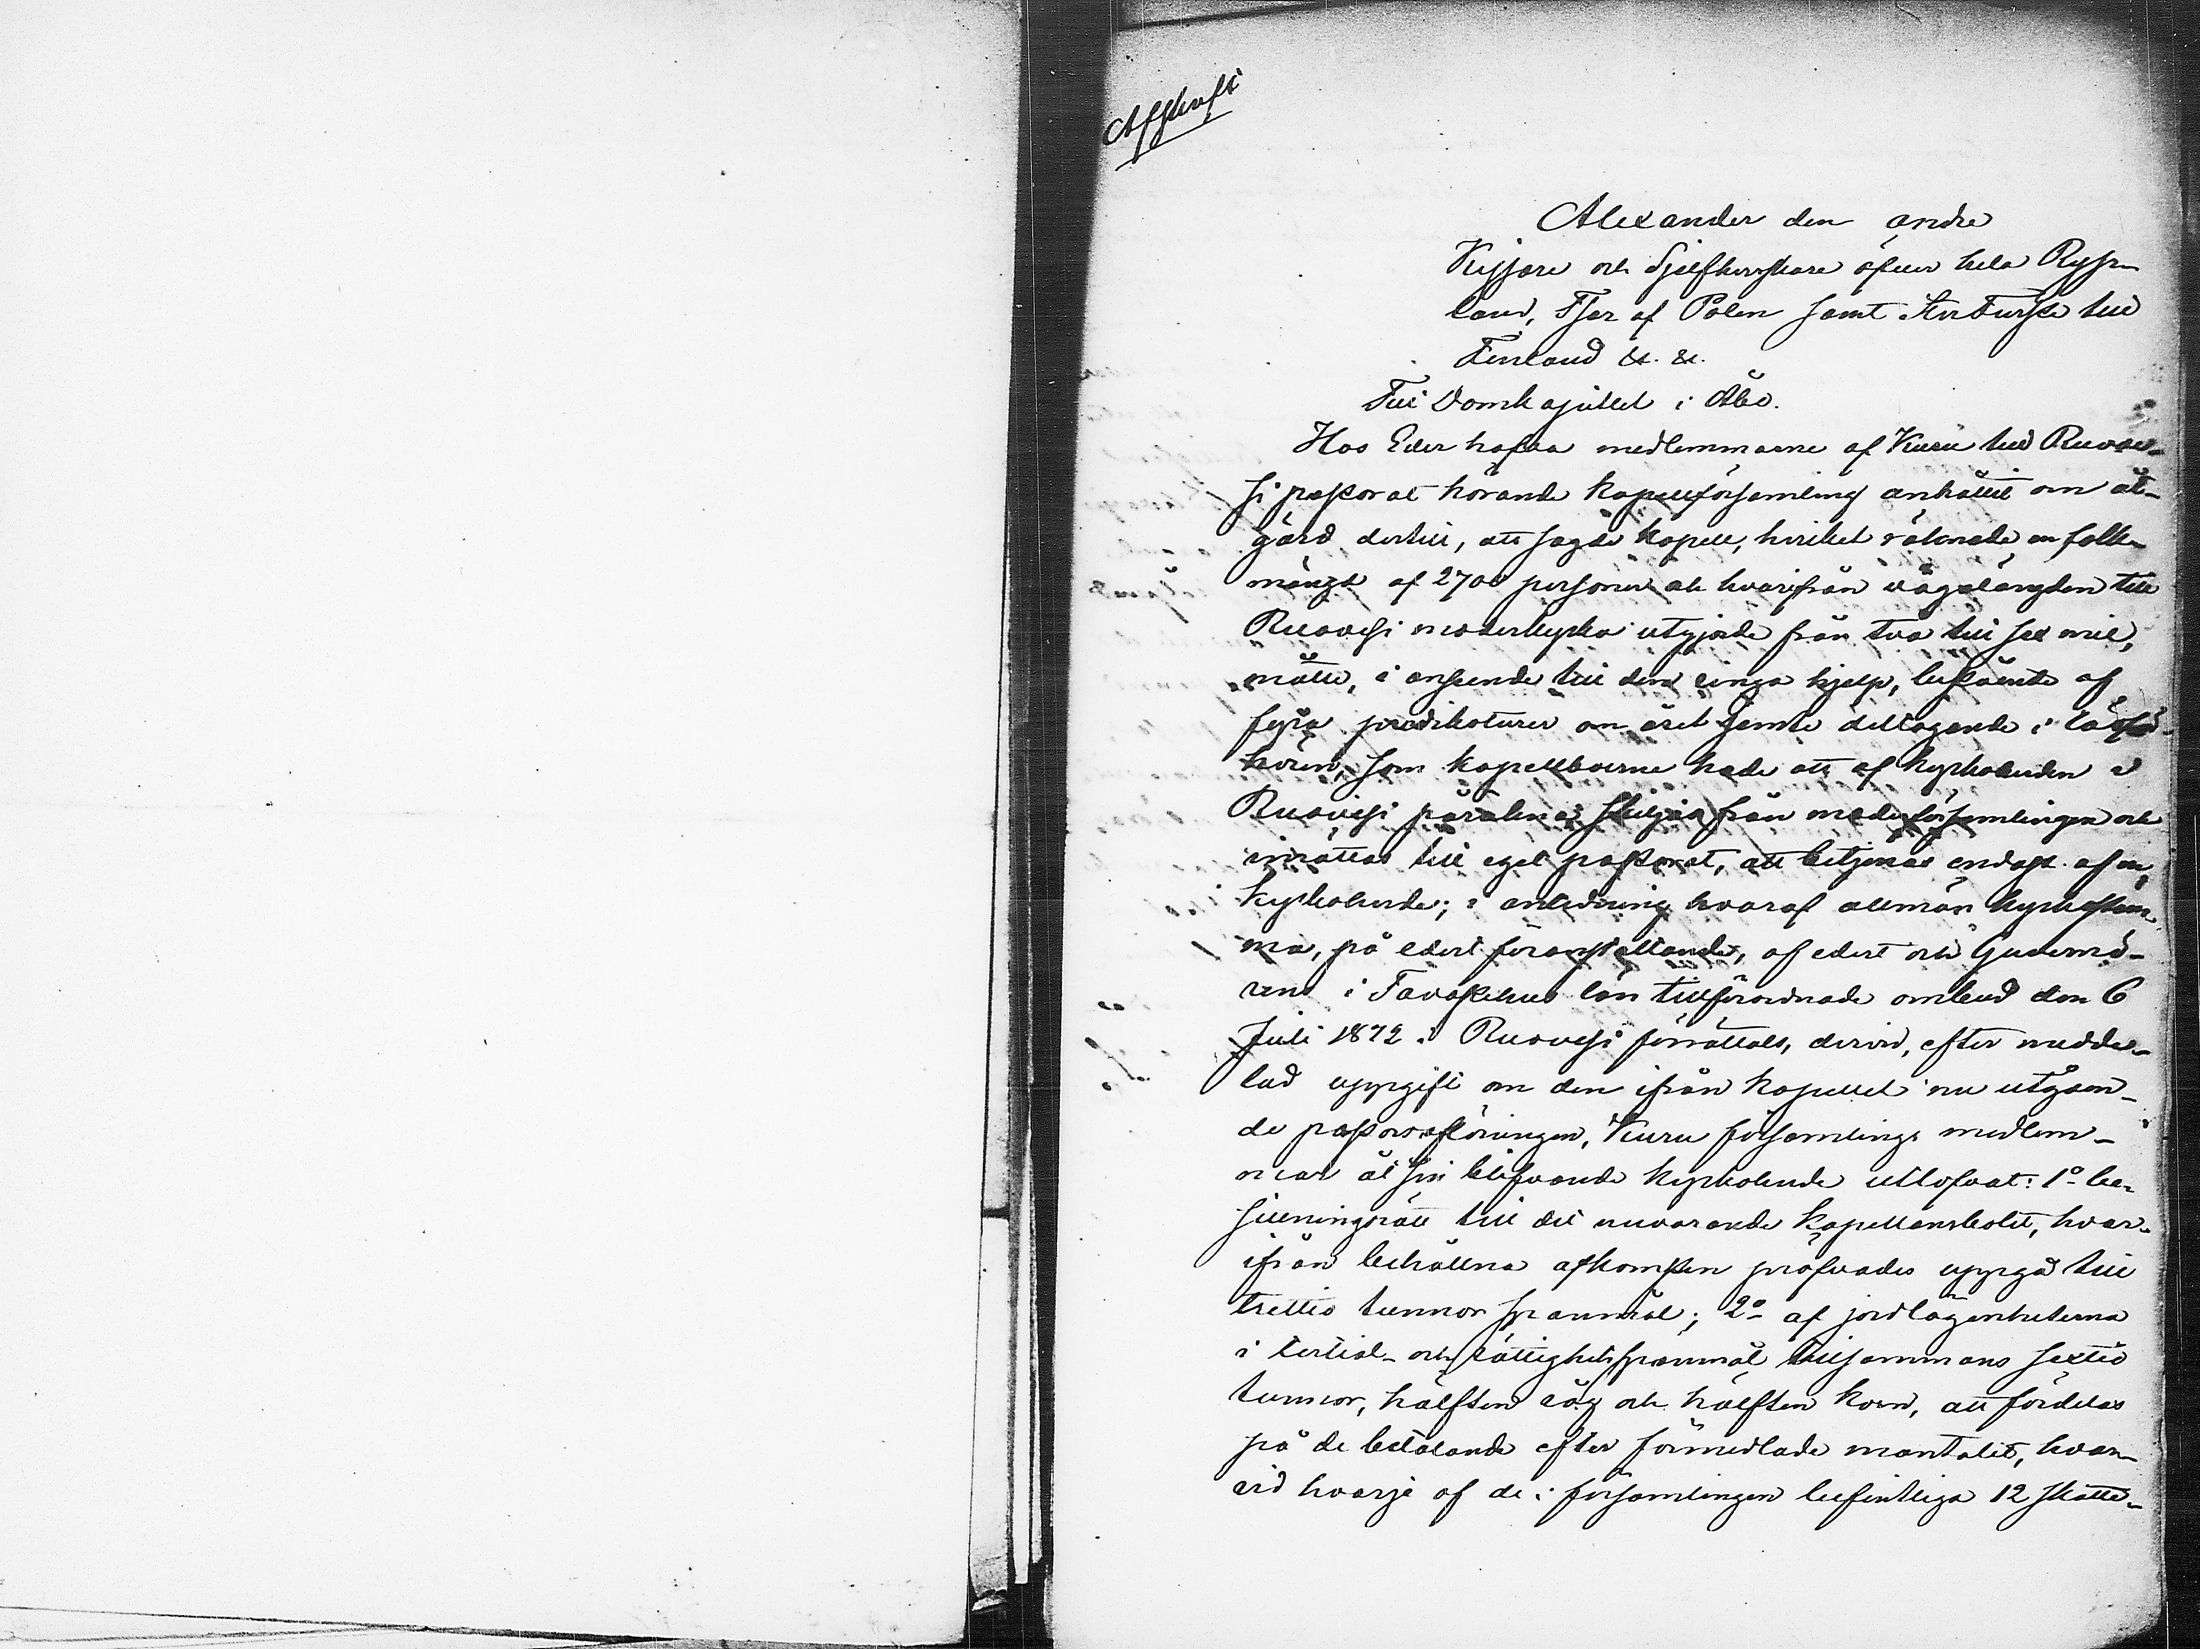 Afskrift
Alexander den andre
Kejsare och Sjelfherskare öfver hela Ryss-
land, Tsar af Polen samt Storfurste till
Finland &c. &c.
Till Domkapitlet i Åbo.
Hos Eder hafva medlemmarne af Kuru till Ruove-
si pastorat hörande kapellförsamling anhållit om åt-
gärd dertill, att sagde kapell, hvilket räknade en folk-
mängd af 2700 personer och hvarifrån väglängden till
Ruovesi moderkyrka utgjorde från två till sex mil,
måtte, i anseende till den ringa hjelp, bestående af
fyra predikoturer om året jemte deltagande i läsför-
hören, som kapellboerne hade att af kyrkoherden i
Ruovesi påräkna, skiljas från moderförsamlingen och
inrättas till eget pastorat, att betjenas endast af en
kyrkoherde; i anledning hvaraf allmän kyrkostäm-
ma, på edert föranstaltande, af edert och Guvernö-
rens i Tavastehus län tillförordnade ombud den 6
Juli 1872 i Ruovesi förrättats, dervid, efter medde-
lad uppgift om den ifrån kapellet nu utgåen-
de pastorsaflöningen, Kuru församlings medlem-
mar åt sin blifvande kyrkoherde utlofvat: 1º be-
sittningsrätt till det nuvarande kapellansbolet, hvar-
ifrån behållna afkomsten pröfvades uppgå till
trettio tunnor spanmål; 2º af jordlägenheterna
i tertial- och rättighetsspanmål tillsammans sextio
tunnor, hälften råg och hälften korn, att fördelas
på de betalande efter förmedlade mantalet, hvar-
vid hvarje af de i församlingen befintliga 12 skatte-